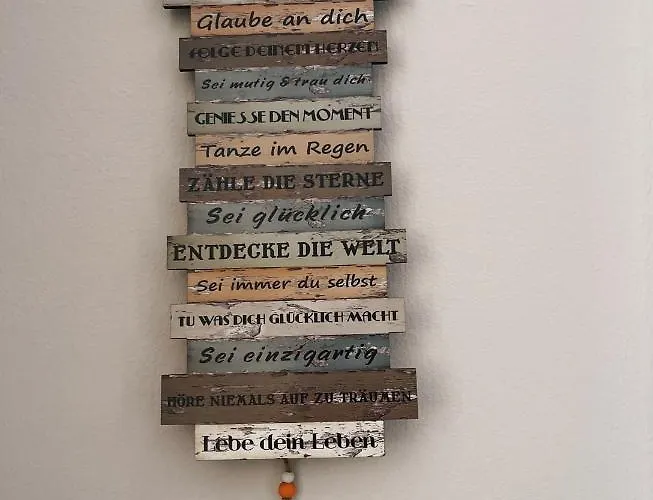 Glaube an dich
FOLGE DEINEM HERZEN
Sei mutig & trau dich
GENIESSE DEN MOMENT
Tanze im Regen
ZÄHLE DIE STERNE
Sei glücklich
ENTDECKE DIE WELT
Sei immer du selbst
TU WAS DICH GLÜCKLICH MACHT
Sei einzigartig
HÖRE NIEMALS AUF ZU TRÄUMEN
Lebe dein Leben